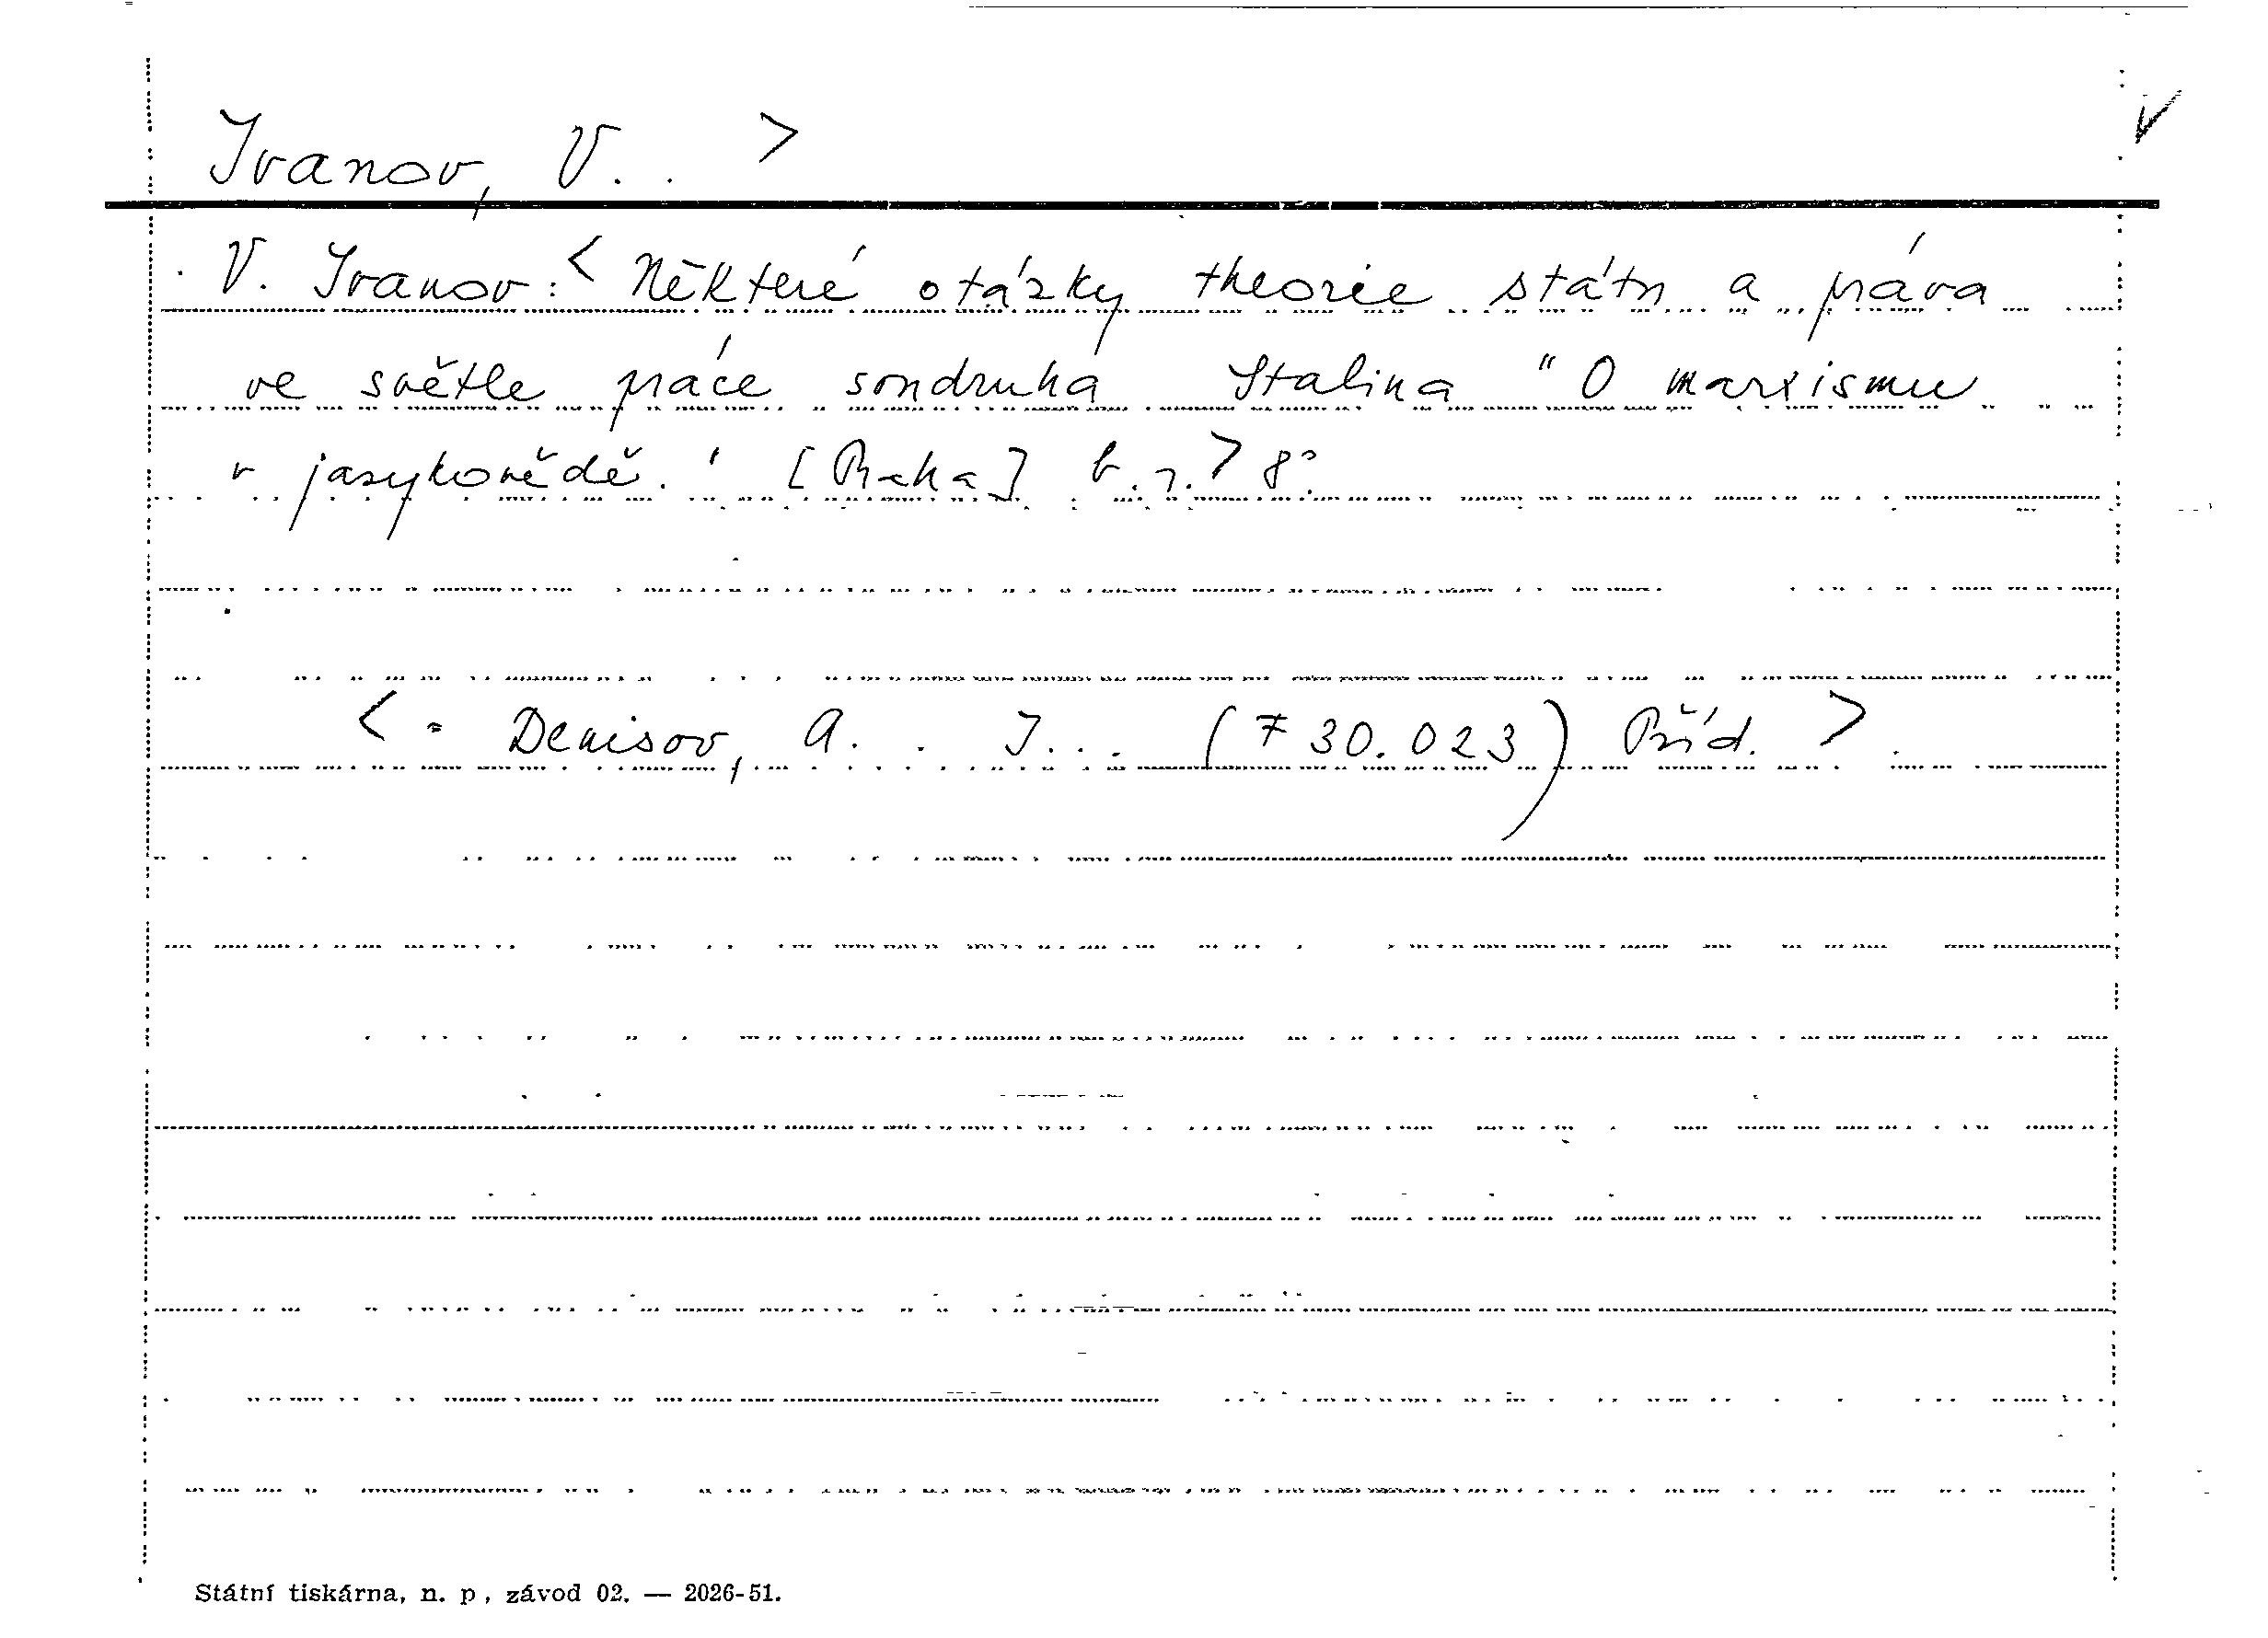 Ivanov, V. . >
V. Ivanov: < Některé otázky theorie státu a práva
ve světle práce soudruha Stalina "O marxismu
v jazykovědě." [Praha] b.r. > 8°
< = Denisov, A. . I... (7 30.023) Příd. >
Státní tiskárna, n. p., závod 02. — 2026-51.